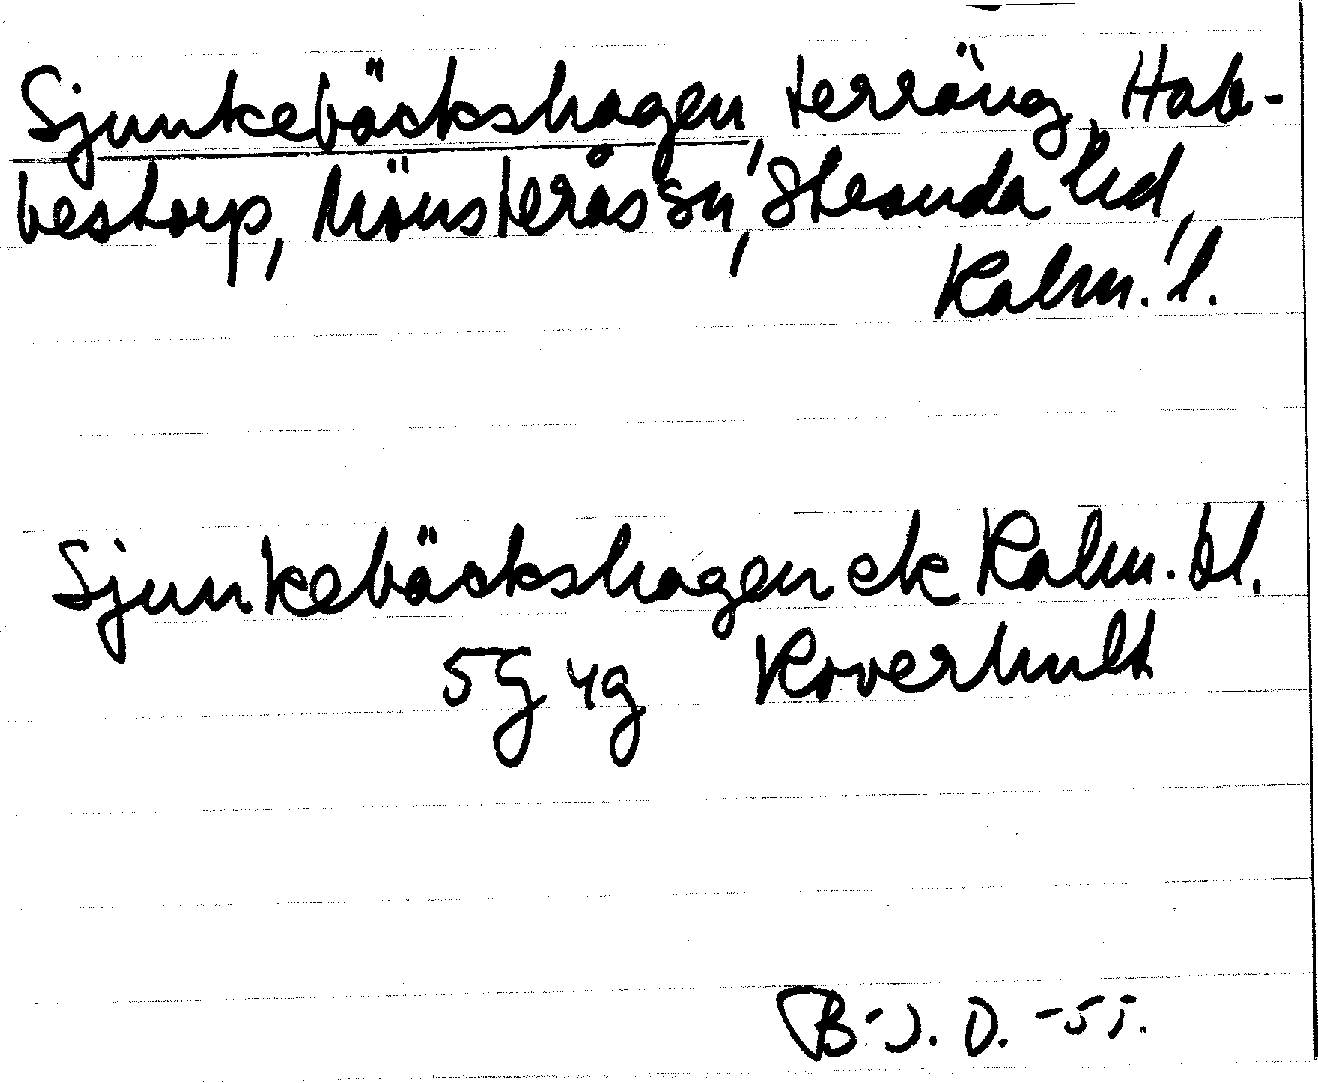 Sjunkebäckshagen, terräng, Hab-
bestorp, Mönsterås sn, Stranda hd,
Kalm. l.
Sjunkebäckshagen ek Kalm. bl.
5G 4g Roverhult
B-J. D. -55.